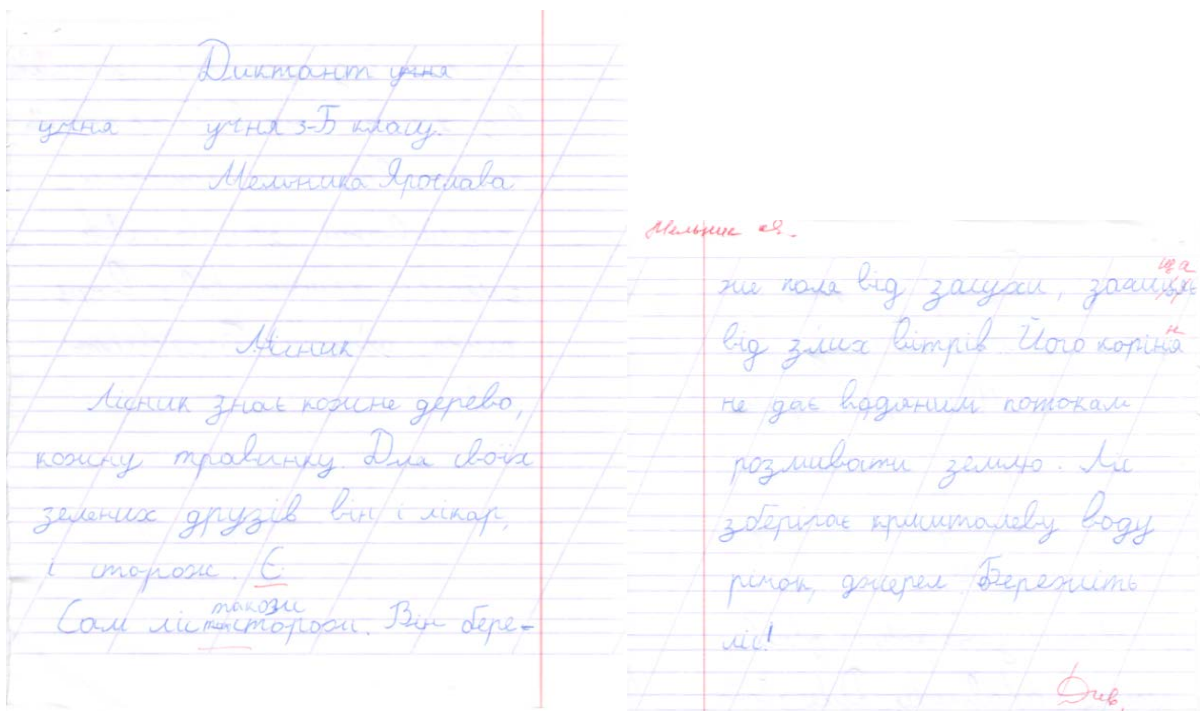 Диктант учня
учня учня 3-Б класу.
Мельника Ярослава
Лісник
Лісник знає кожне дерево,
кожну травинку. Для своїх
зелених друзів він і лікар,
і сторож. Є
також
Сам ліс сторож. Він бере-
Мельник Я.
ща
же поля від засухи, захищає
від злих вітрів. Його коріня
н
не дає водяним потокам
розмивати землю. Ліс
зберігає кришталеву воду
річок, джерел. Бережіть
ліс!